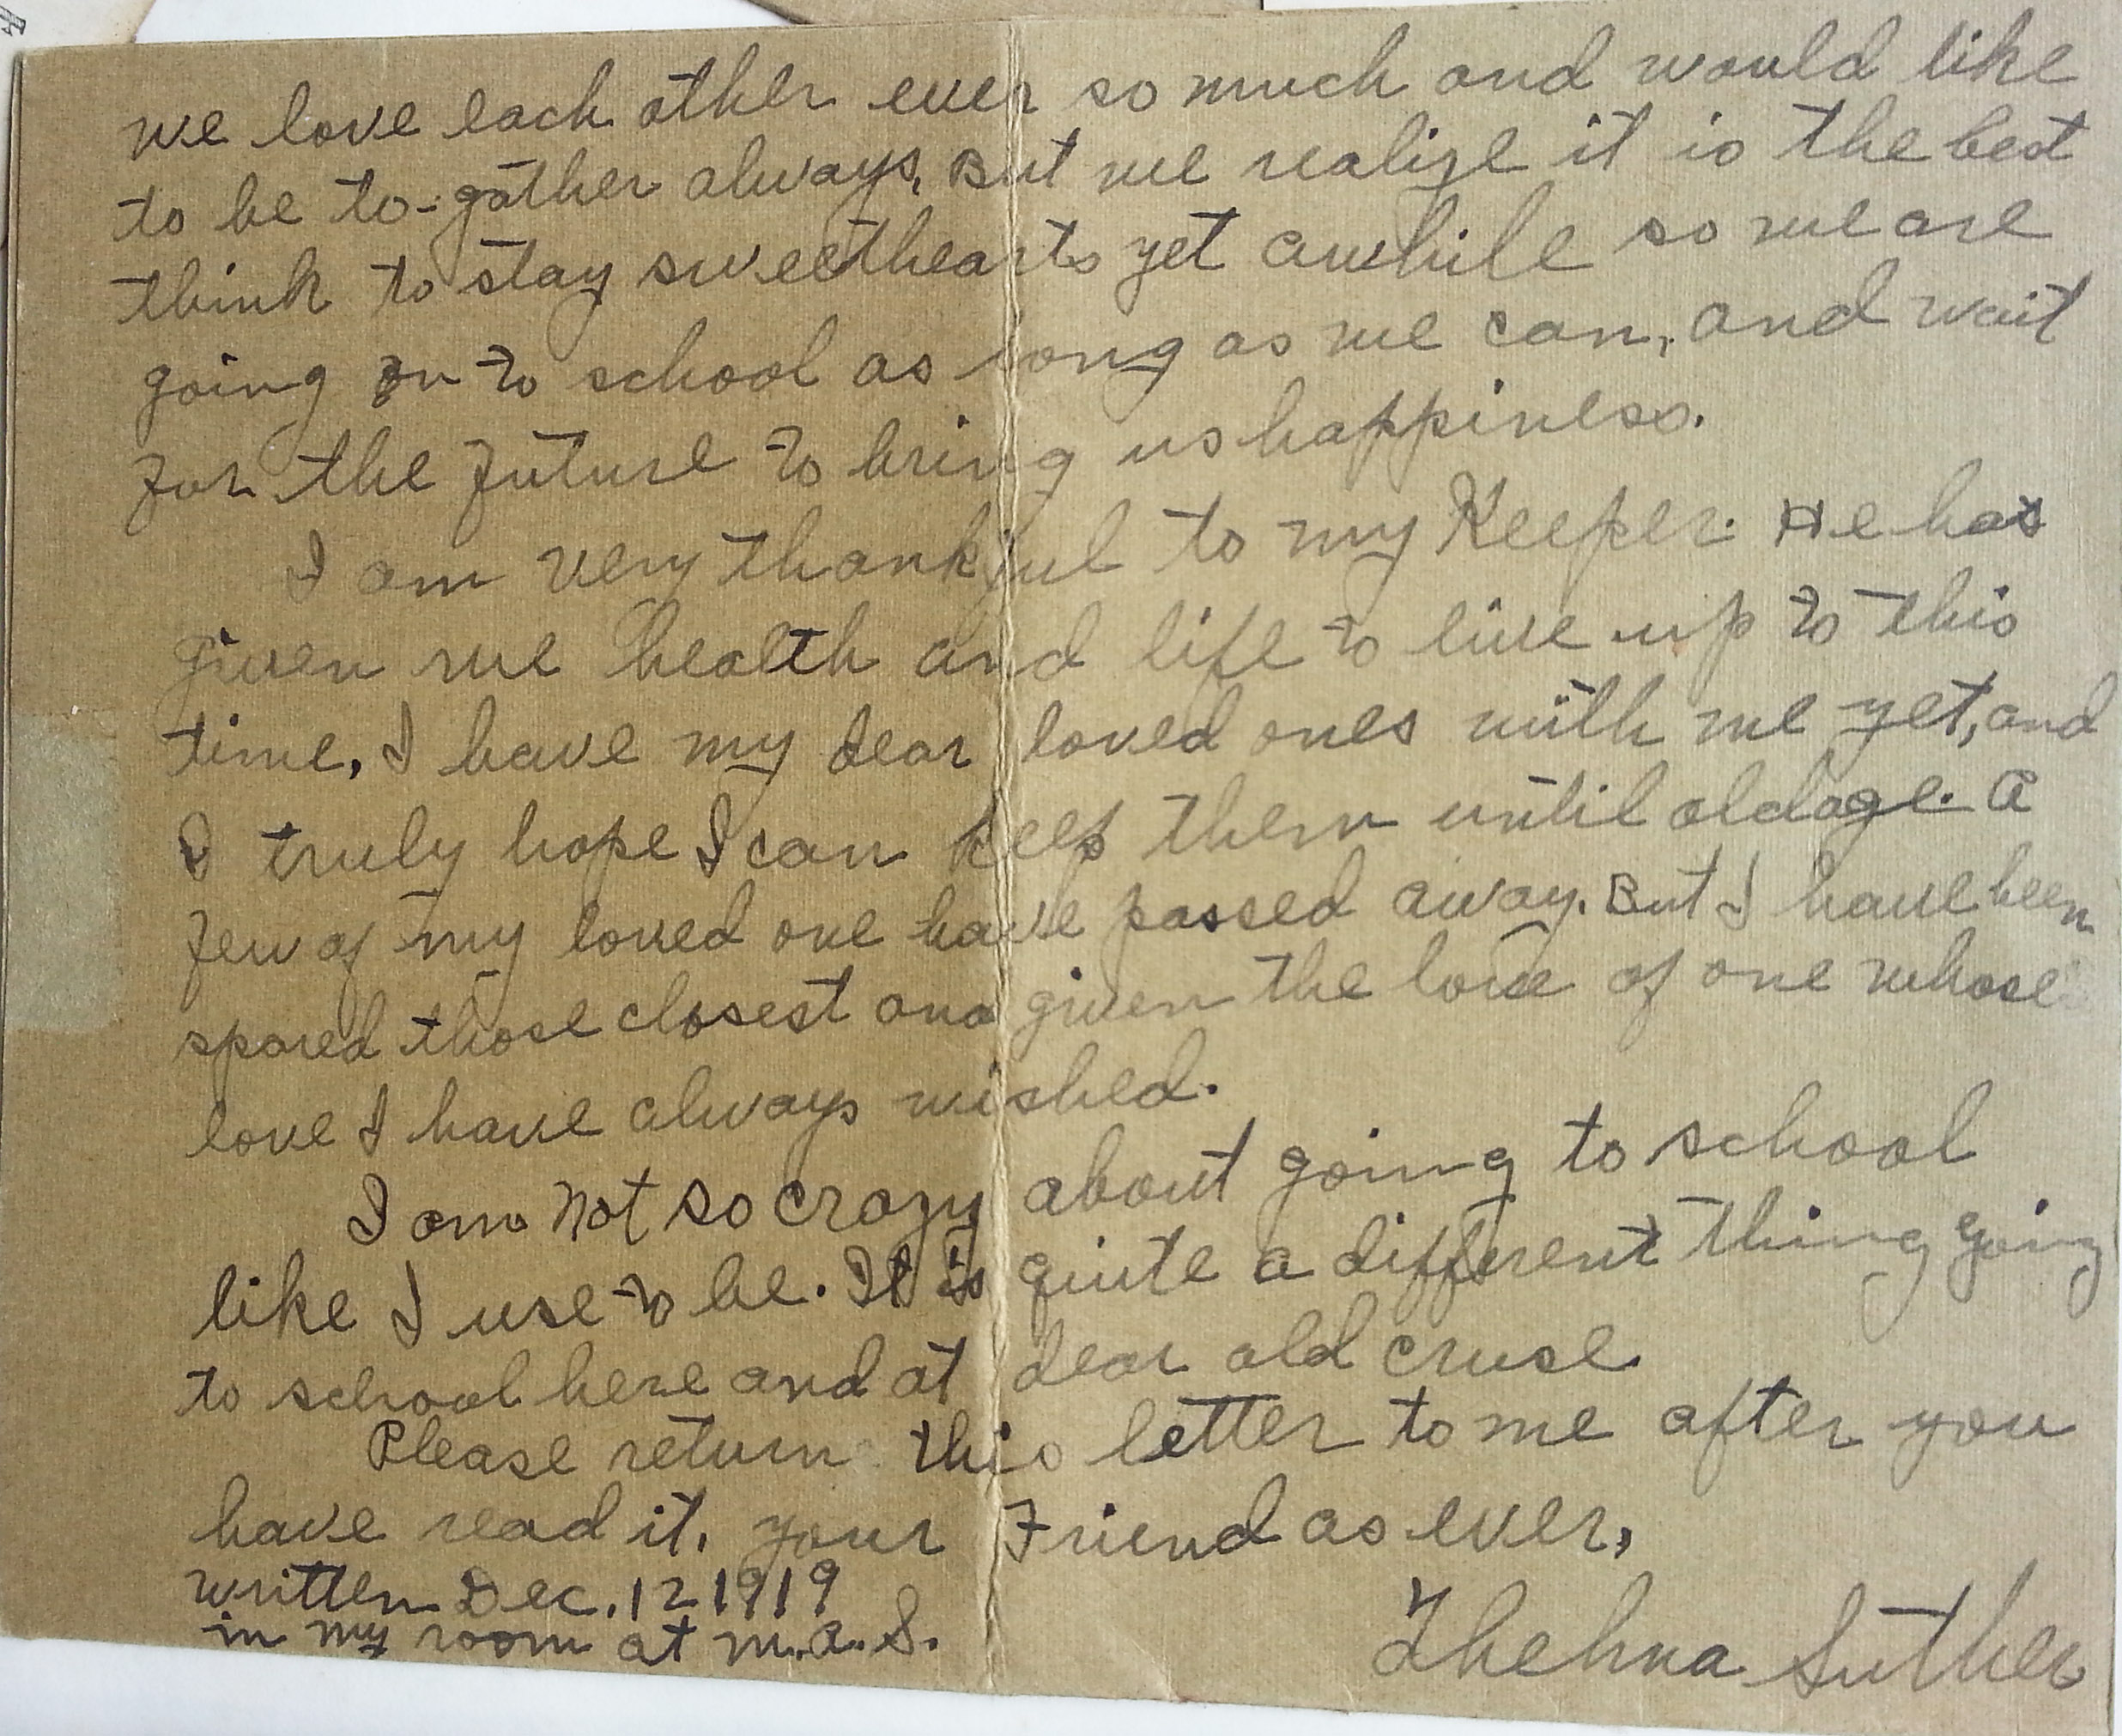 we love each other ever so much and would like
to be to-gather always, But we realize it is the best
think to stay sweethearts yet awhile so we are
going on to school as long as we can, and wait
for the future to bring us happiness.
I am very thankful to my Keeper. He has
given me health and life to live up to this
time. I have my dear loved ones with me yet, and
I truly hope I can keep them until oldage. A
few of my loved one have passed away. But I have been
spared those closest and given the love of one whose
love I have always wished.
I am not so crazy about going to school
like I use to be. It is quite a different thing going
to school here and at dear old cruse.
Please return this letter to me after you
have read it. your Friend as ever,
written Dec. 12 1919
in my room at m.a.S.
Thelma Suther